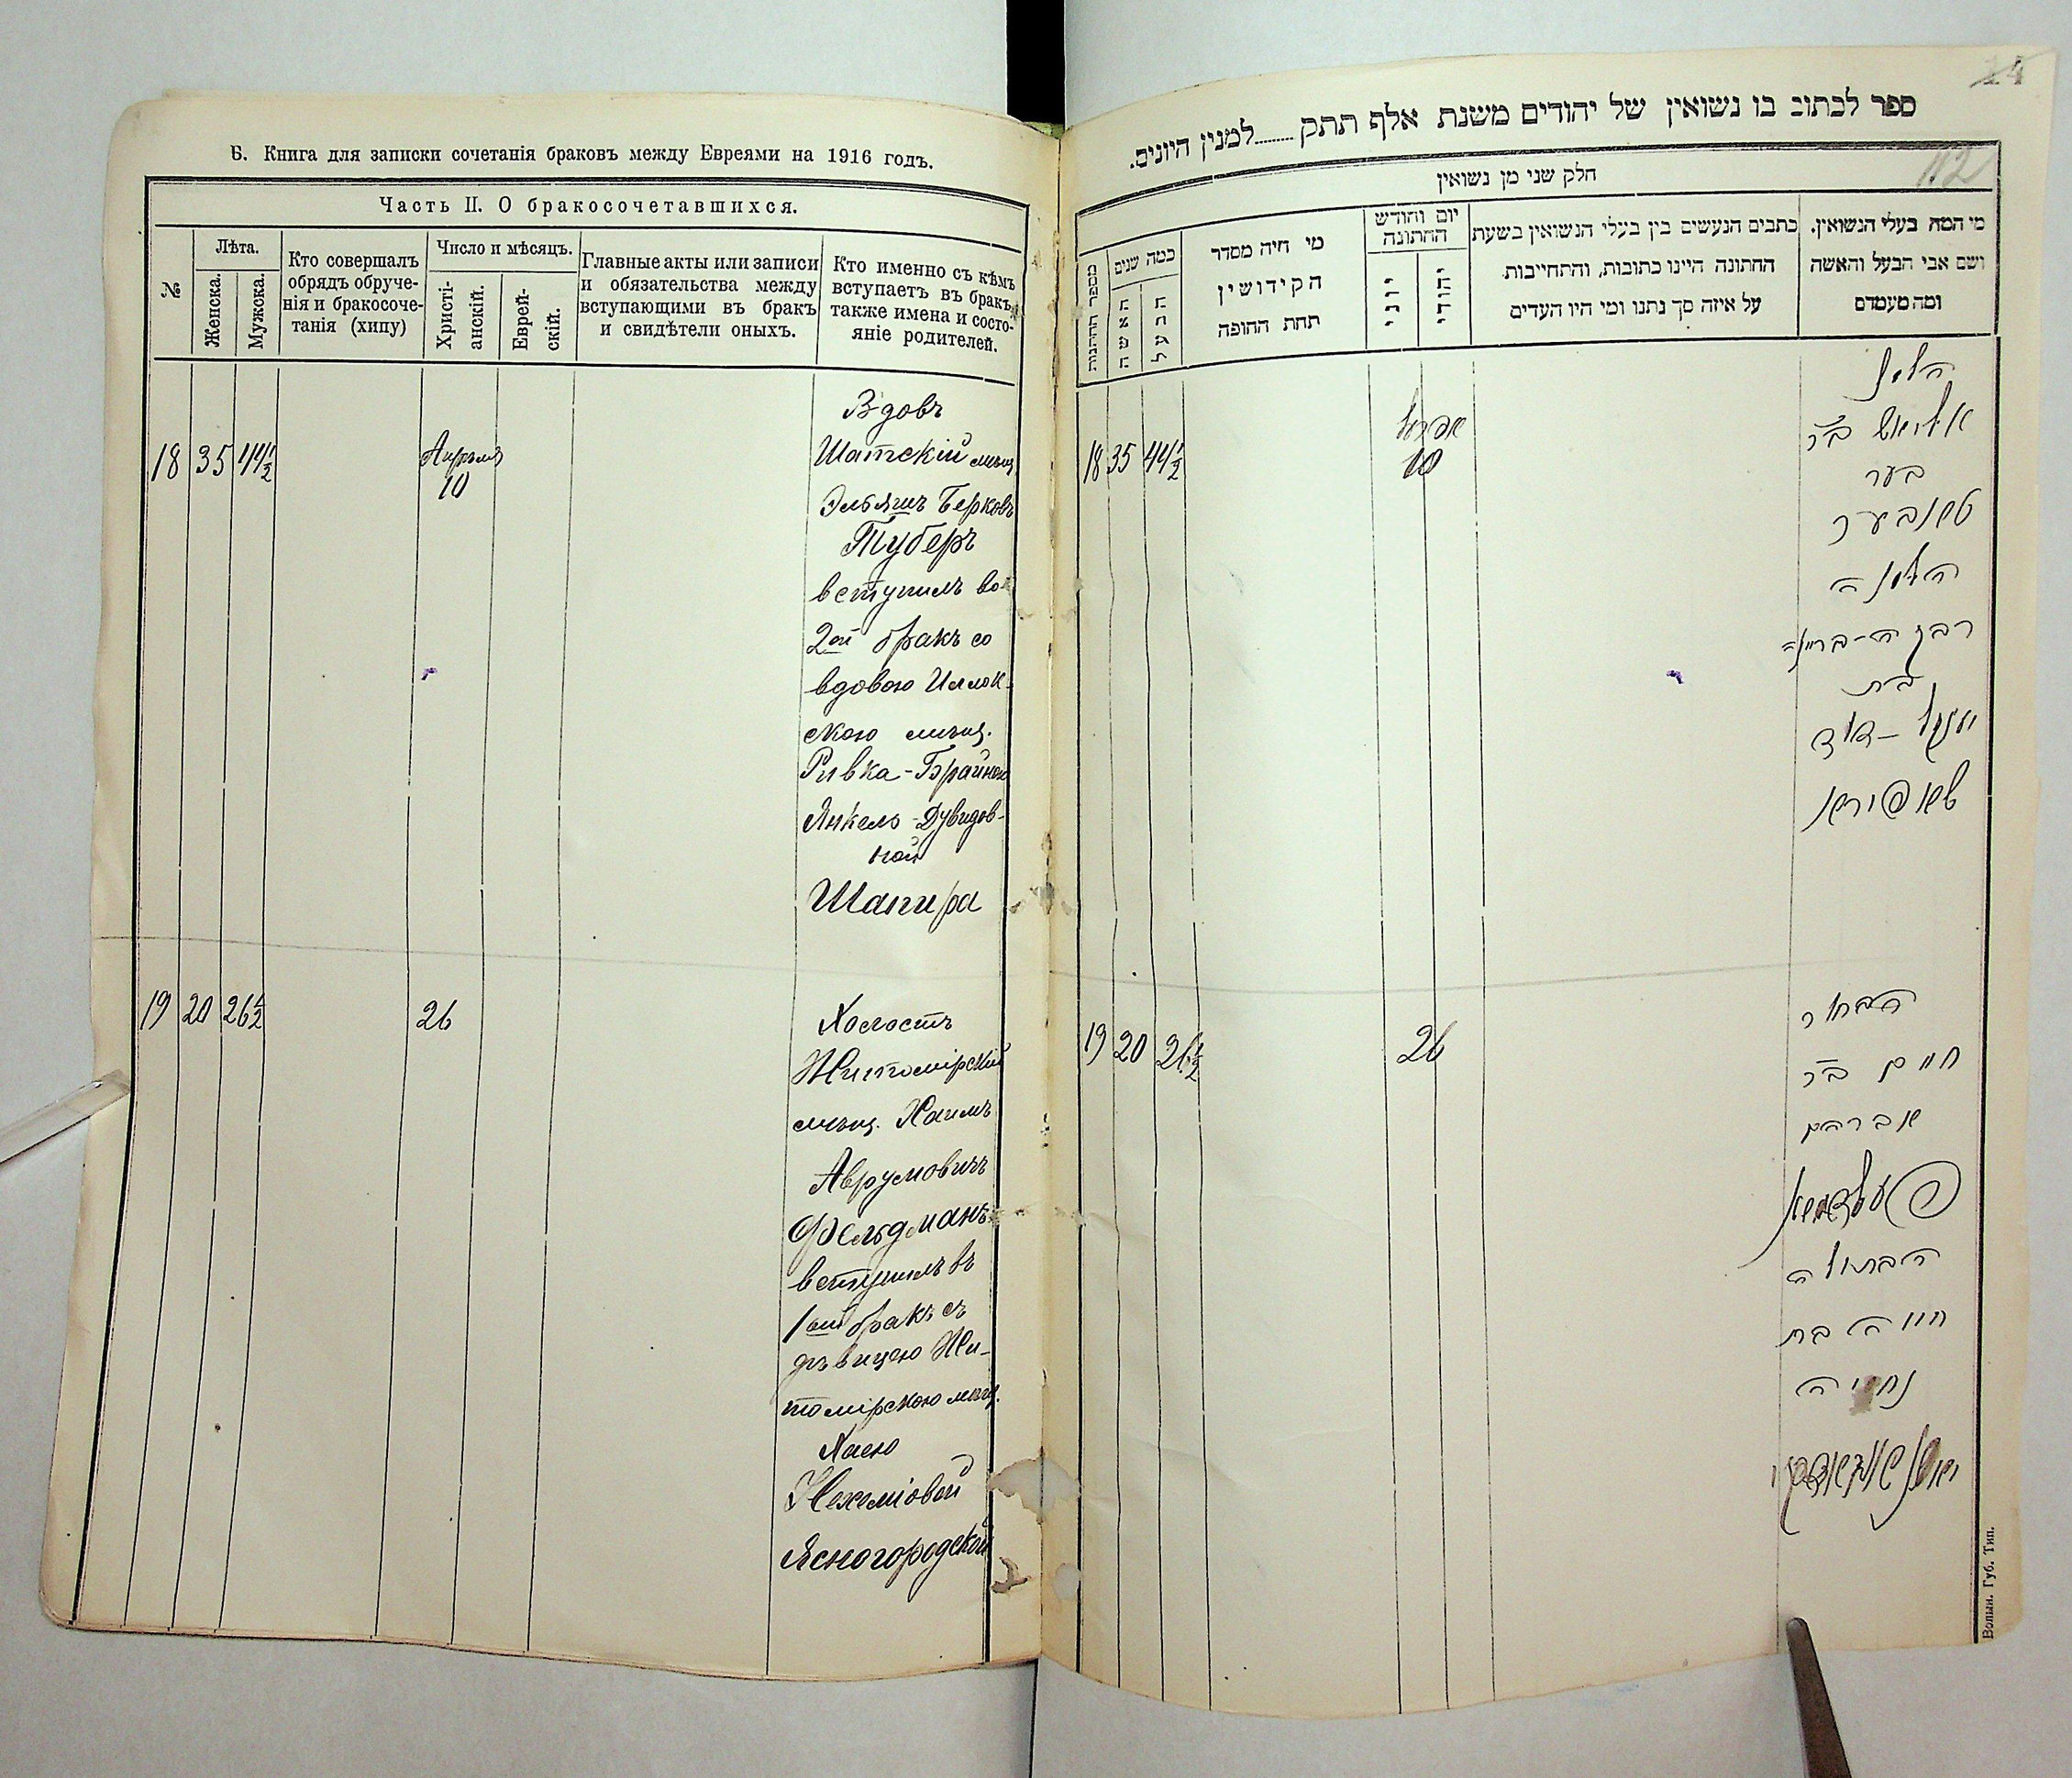 Б. Книга для записки сочетанія браковъ между Евреями на 1916 годъ.
Часть II. О бракосочетавшихся.
№
Лѣта.
Женска.
Мужска.
Кто совершалъ
обрядъ обруче-
нія и бракосоче-
танія (хипу)
Число и мѣсяцъ.
Христі-
анскій.
Еврей-
скій.
Главные акты или записи
и обязательства между
вступающими въ бракъ
и свидѣтели оныхъ.
Кто именно съ кѣмъ
вступаетъ въ бракъ,
также имена и состо-
яніе родителей.
18 35 44½ Апрѣля
10
Вдовъ
Шатскій мѣщ.
Эльяшъ Берковъ
Туберъ
вступилъ во
2ой бракъ со
вдовою Иллок-
скою мѣщ.
Ривка-Брайною
Янкель-Дувидов-
ной
Шапира
19 20 26½ 26
Холостъ
Житомірскій
мѣщ. Хаимъ
Аврумовичъ
Фельдманъ
вступилъ въ
1ый бракъ съ
дѣвицею Жи-
томірскою мѣщ.
Хаею
Нехеміовой
Ясногородской
112
ספר לכתוב בו נשואין של יהודים משנת אלף תתק ........ למנין היונים.
חלק שני מן נשואין
מספר החתנות
כמה שנים
האשה
הבעל
מי היה מסדר
הקידושין
תחת החופה
יום וחודש
החתונה
יוני
יהודי
כתבים הנעשים בין בעלי הנשואין בשעת
החתונה היינו כתובות, והתחייבות
על איזה סך נתנו ומי היו העדים
מי המה בעלי הנשואין.
ושם אבי הבעל והאשה
ומה מעמדם
18 35 44½ אפריל
10
האלמן
אליאש ב״ר
בער
טאובער
האלמנה
רבקה-בריינה
בת
יענקל-דוד
שאפירא
19 20 26½ 26
הבחור
חיים ב״ר
אברהם
פעלדמאן
הבתולה
חיה בת
נחמיה
Волын. Губ. Тип.